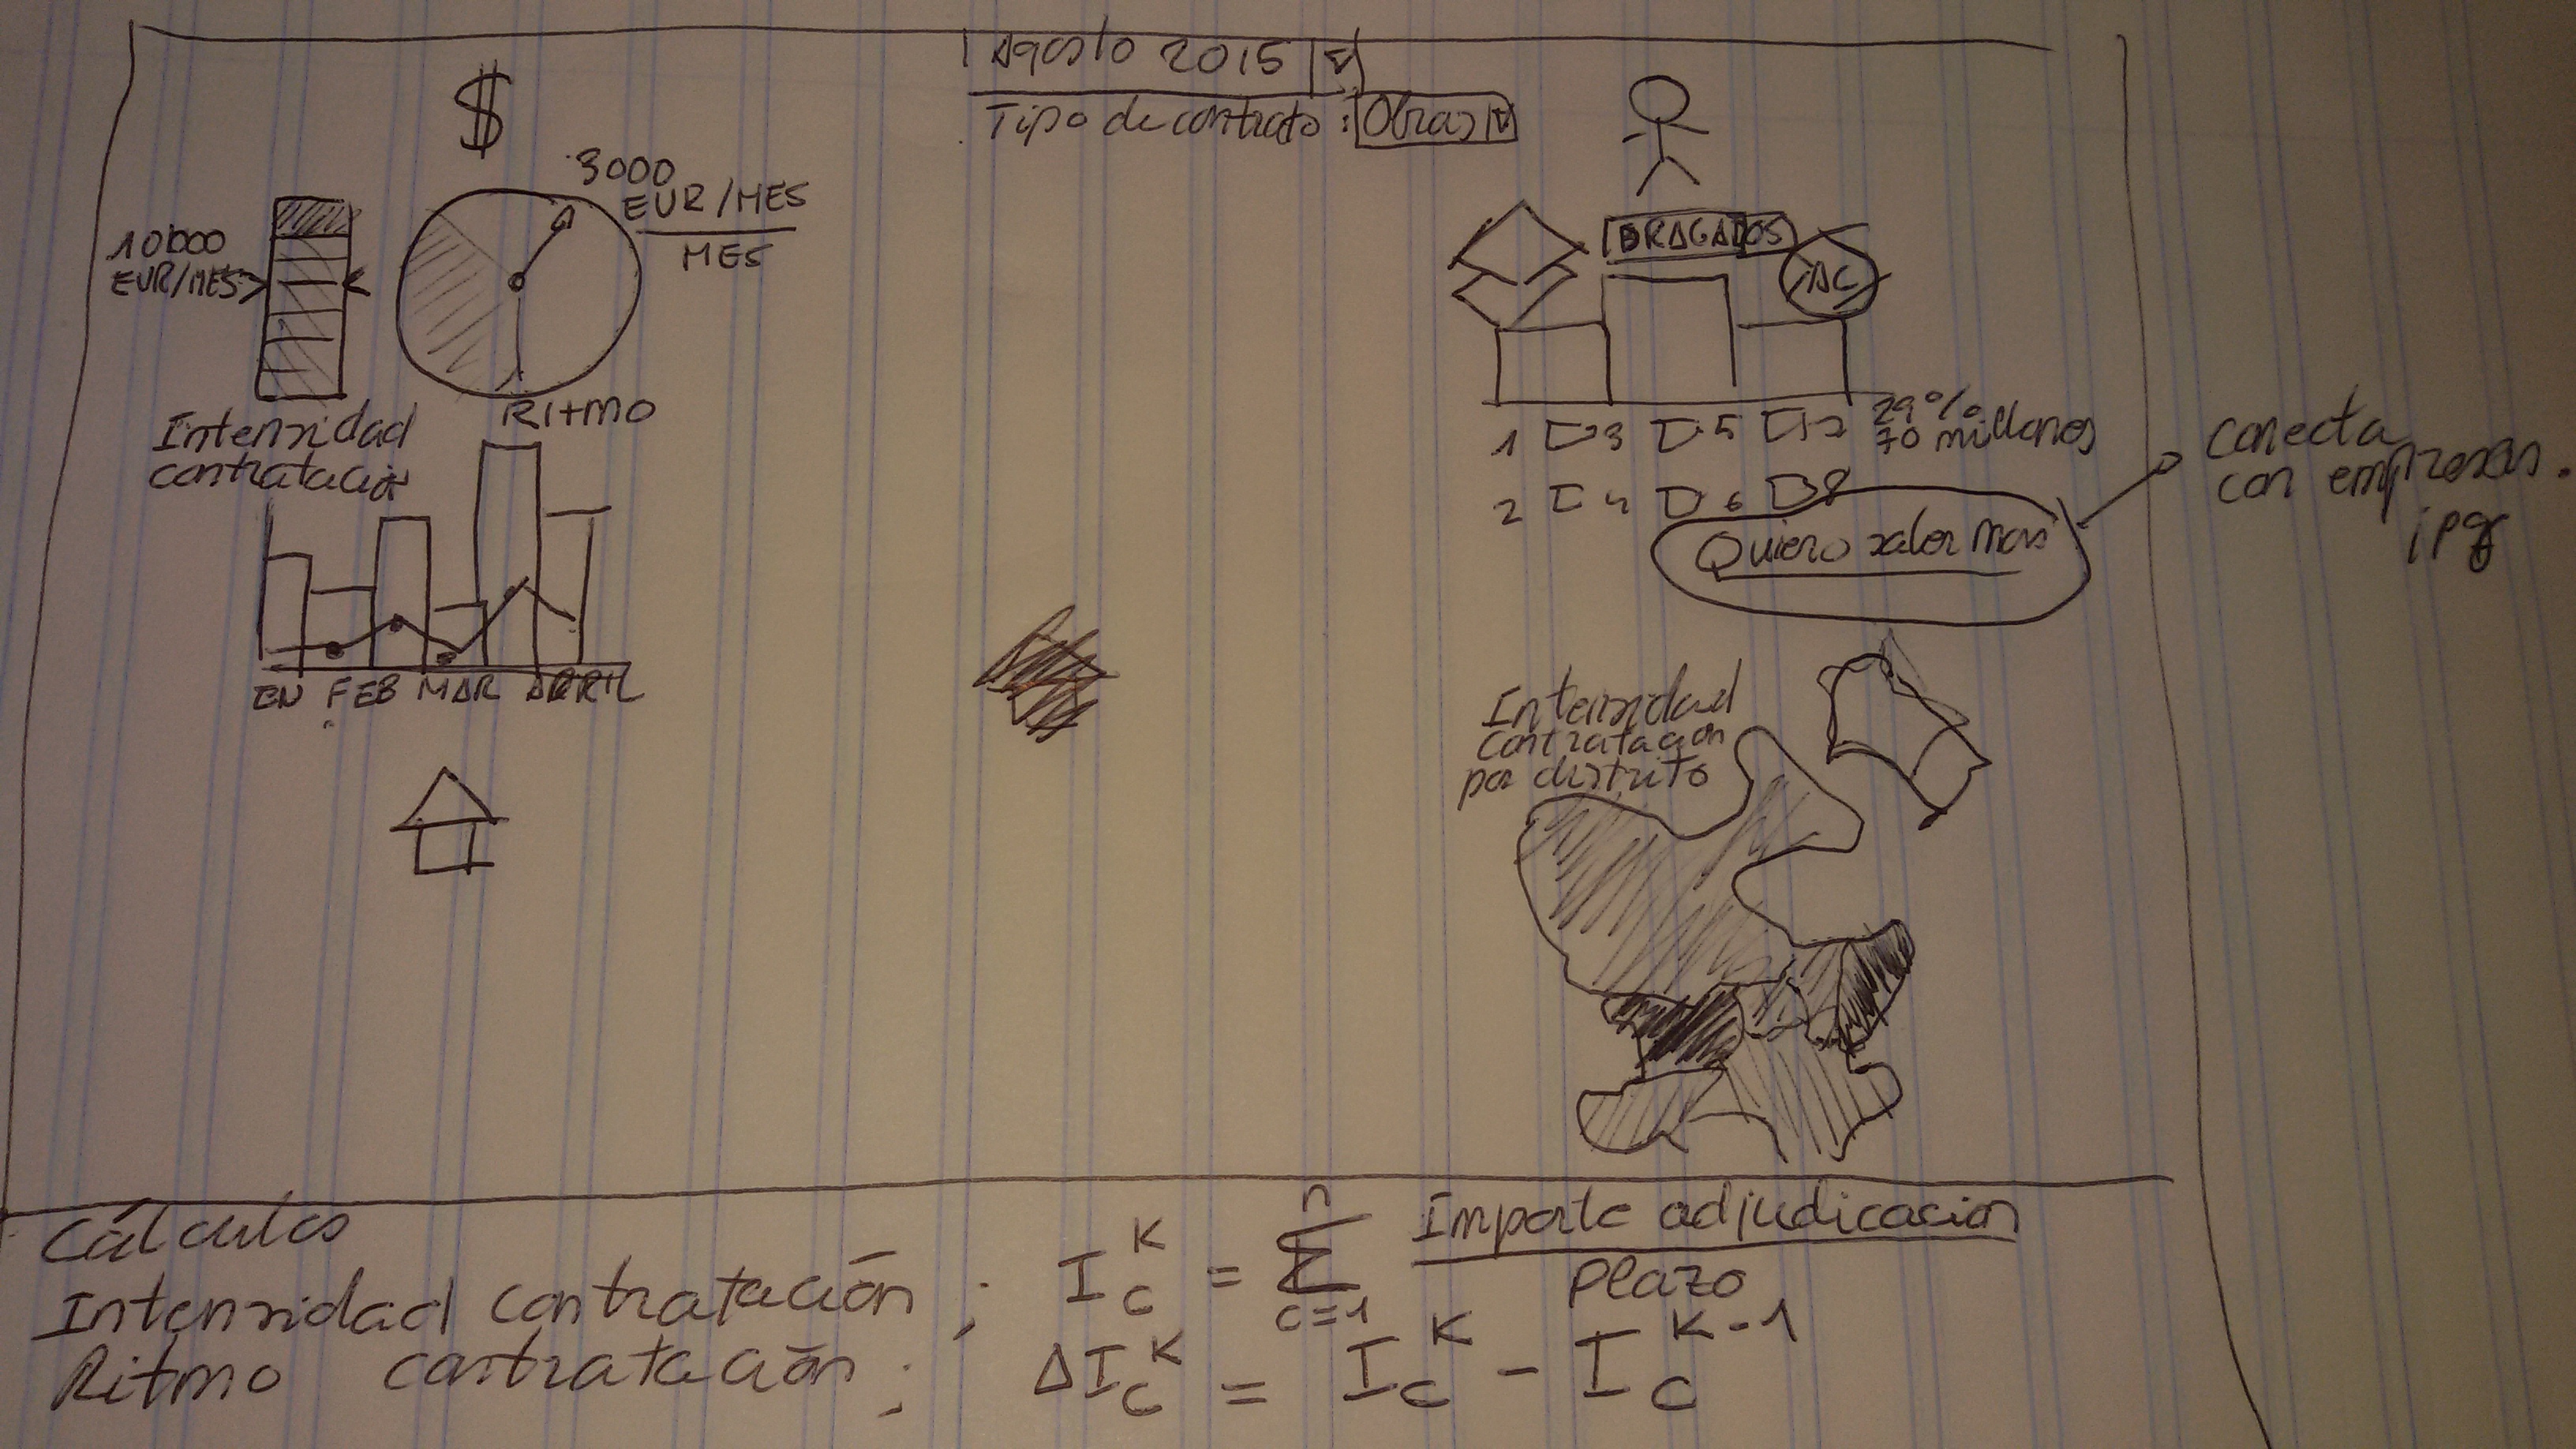 $
Agosto 2015
Tipo de contrato: Obras
3000
EUR/MES
MES
10000
EUR/MES
Intensidad
contratación
RITMO
EN FEB MAR ABRIL
DRAGADOS
1 3 5 7 29%
70 millones
2 4 6 8
Quiero saber mas
conecta
con empresas.
Intensidad
contratación
por distrito
Cálculos
Intensidad contratación ; I_C^K = Σ_{c=1}^{n} Importe adjudicacion / Plazo
Ritmo contratación ; ΔI_C^K = I_C^K - I_C^{K-1}